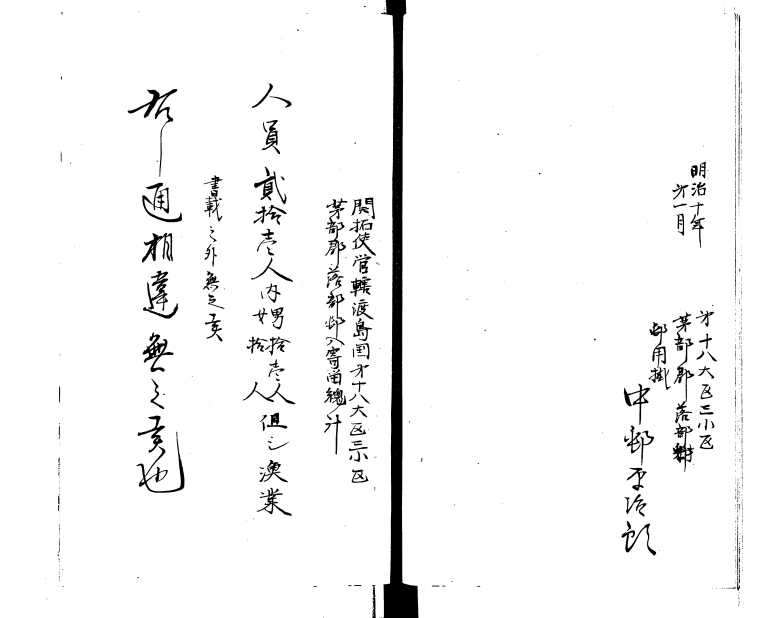 明治十年
才一月
才十八大区三小区
茅部郡落部邨
邨用掛
中邨平治郎
開拓使管轄渡島国才十八大区三小区
茅部郡落部邨入寄留總計
人員貳拾壱人内男拾壱人女拾人但シ漁業
書載之外無之事
右之通相違無之事也